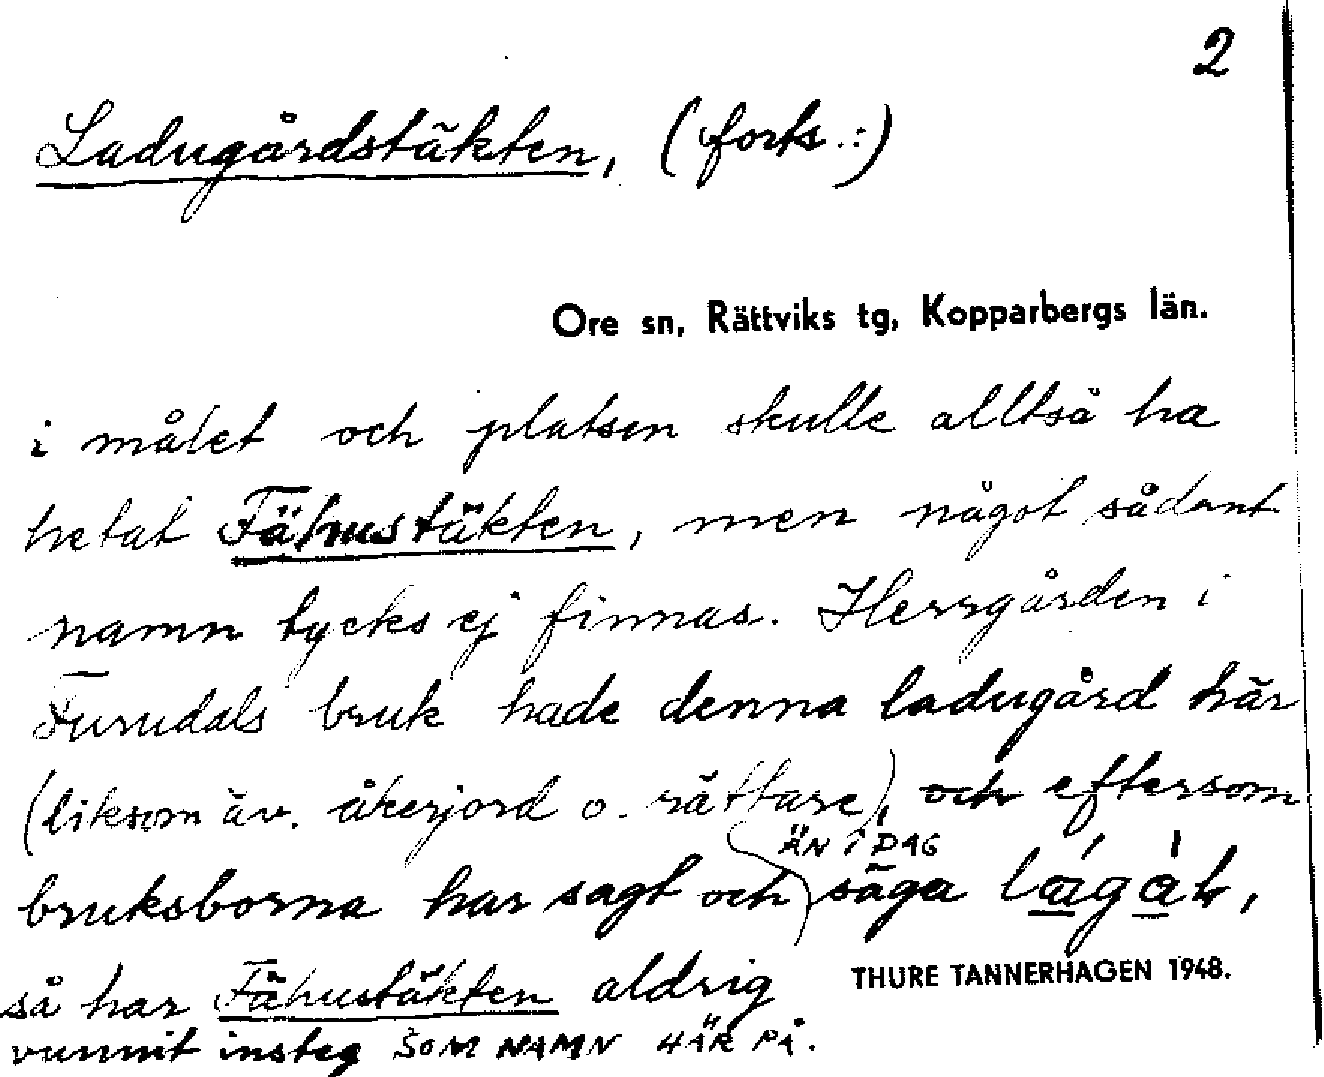 2
Ladugårdstäkten, (forts.:)
Ore sn, Rättviks tg, Kopparbergs län.
i målet och platsen skulle alltså ha
hetat Fähustäkten, men något sådant
namn tycks ej finnas. Herrgården i
Furudals bruk hade denna ladugård här
(liksom äv. åkerjord o. rättare), och eftersom
ÄN I DAG
bruksborna har sagt och säga
så har Fähustäkten aldrig
THURE TANNERHAGEN 1948.
vunnit insteg SOM NAMN HÄR PÅ.